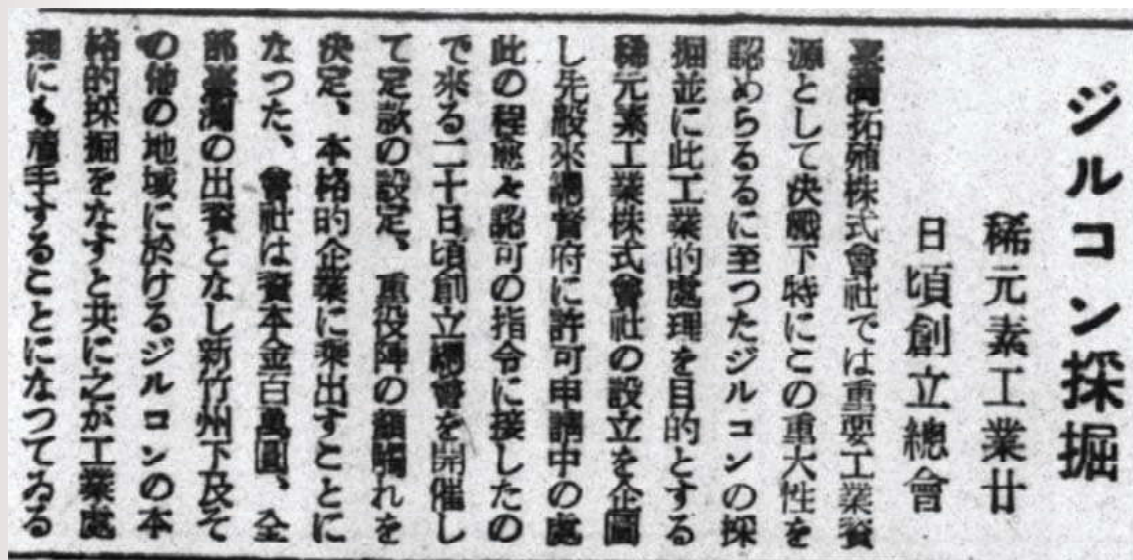 ジルコン採掘
稀元素工業廿
日頃創立總會
臺灣拓殖株式會社では重要工業資
源として決戰下特にこの重大性を
認めらるるに至つたジルコンの採
掘並に此工業的處理を目的とする
稀元素工業株式會社の設立を企圖
し先般來總督府に許可申請中の處
此の程愈々認可の指令に接したの
で來る二十日頃創立總會を開催し
て定款の設定、重役陣の顏觸れを
決定、本格的企業に乘出すことに
なつた、會社は資本金百萬圓、全
部臺灣の出資となし新竹州下及そ
の他の地域に於けるジルコンの本
格的採掘をなすと共に之が工業處
理にも着手することになつてゐる